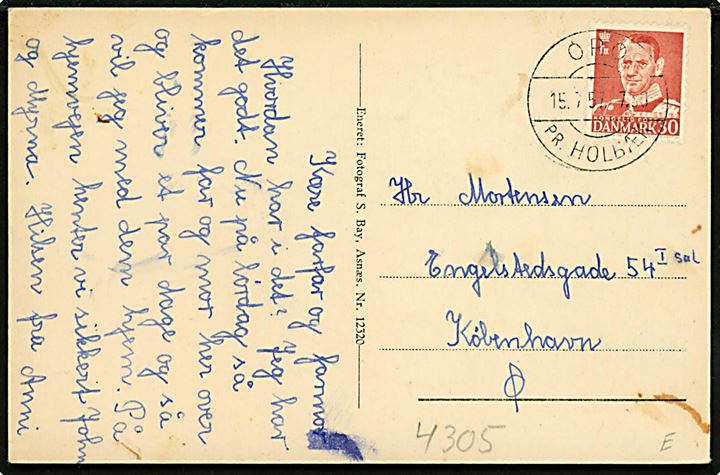 Kære farfar og farmor
Hvordan har i det? Jeg har
det godt. Nu på lørdag så
kommer far og mor her over
og bliver et par dage og så
vil jeg med dem hjem. På
hjemvejen henter vi sikkert John
og Myrna. Hilsen fra Anni
Eneret: Fotograf S. Bay, Asnæs. Nr. 12320
DANMARK 30
PR. HOLBÆK
Hr Mortensen
Engelstedsgade 54 I sal
København
Ø
4305
E